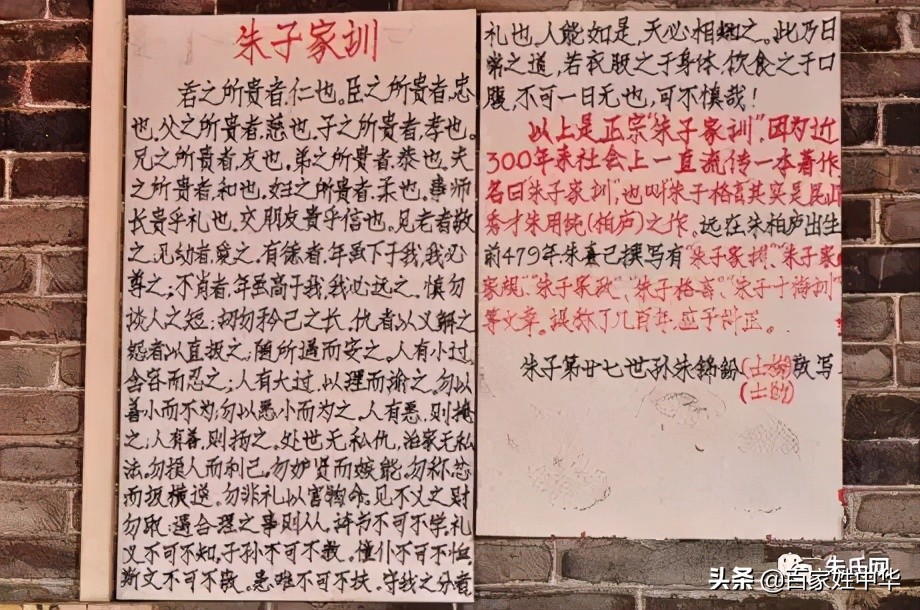 朱子家训
君之所贵者,仁也。臣之所贵者,忠
也,父之所贵者,慈也,子之所贵者,孝也。
兄之所贵者,友也,弟之所贵者,恭也,夫
之所贵者,和也,妇之所贵者,柔也。事师
长贵乎礼也,交朋友贵乎信也。见老者敬
之,见幼者爱之,有德者,年虽下于我,我必
尊之;不肖者,年虽高于我,我必远之。慎勿
谈人之短;切勿矜己之长。仇者以义解之
怨者以直报之;随所遇而安之。人有小过,
含容而忍之;人有大过,以理而谕之。勿以
善小而不为;勿以恶小而为之。人有恶,则掩
之;人有善,则扬之。处世无私仇,治家无私
法。勿损人而利己。勿妒贤而嫉能。勿称忿
而报横逆。勿非礼以害物命。见不义之财
勿取;遇合理之事则从。诗书不可不学。礼
义不可不知。子孙不可不教。僮仆不可不恤
斯文不可不敬。患难不可不扶。守我之分者
礼也,人能如是,天必相之。此乃日
常之道,若衣服之于身体,饮食之于口
腹,不可一日无也,可不慎哉!
以上是正宗“朱子家训”,因为近
300年来社会上一直流传一本著作
名曰“朱子家训”,也叫“朱子格言其实是昆山
秀才朱用纯(柏庐)之作。远在朱柏庐出生
前479年朱熹已撰写有“朱子家训”、“朱子家
家规”、“朱子家政”、“朱子格言”、“朱子十悔训”
等文章。误称了几百年,应予纠正。
朱子第廿七世孙朱锦敬写
朱氏网
头条 @百家姓中华